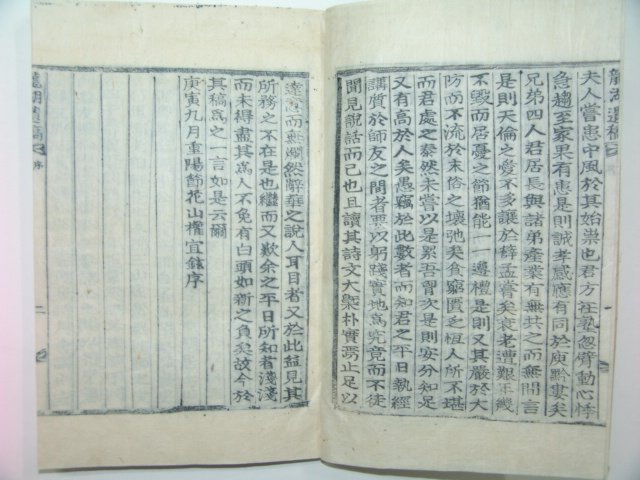 龍湖遺稿
夫人嘗患中風於其始祟也君方在塾忽臂動心悸
急趨至家果有患是則誠孝感應有同於庾黔婁矣
兄弟四人君居長與諸弟產業有無共之而無間言
是則天倫之愛不多讓於薛孟嘗矣衰老遭艱
不毀而居憂之節猶能一一遵禮是則又其嚴於大
防而不流於末俗之壞弛矣食窮匱乏恆人所不堪
而君處之泰然未嘗以是累吾胸次是則安分知足
又有高於人矣愚竊於此數者而知君之平日執經
講質於師友之間者要以躬踐實地爲究竟而不徒
聞見說話而已也且讀其詩文大槩朴實焉止足以
達意而無嫺然辭華之說人耳目者又於此益見其
所務之不在是也繼而又歎余之平日所知者淺淺
而未得盡其爲人不免有白頭如新之負矣故今於
其稿爲之一言如是云爾
庚寅九月重陽節花山權宜銖序
龍湖遺稿 序
二